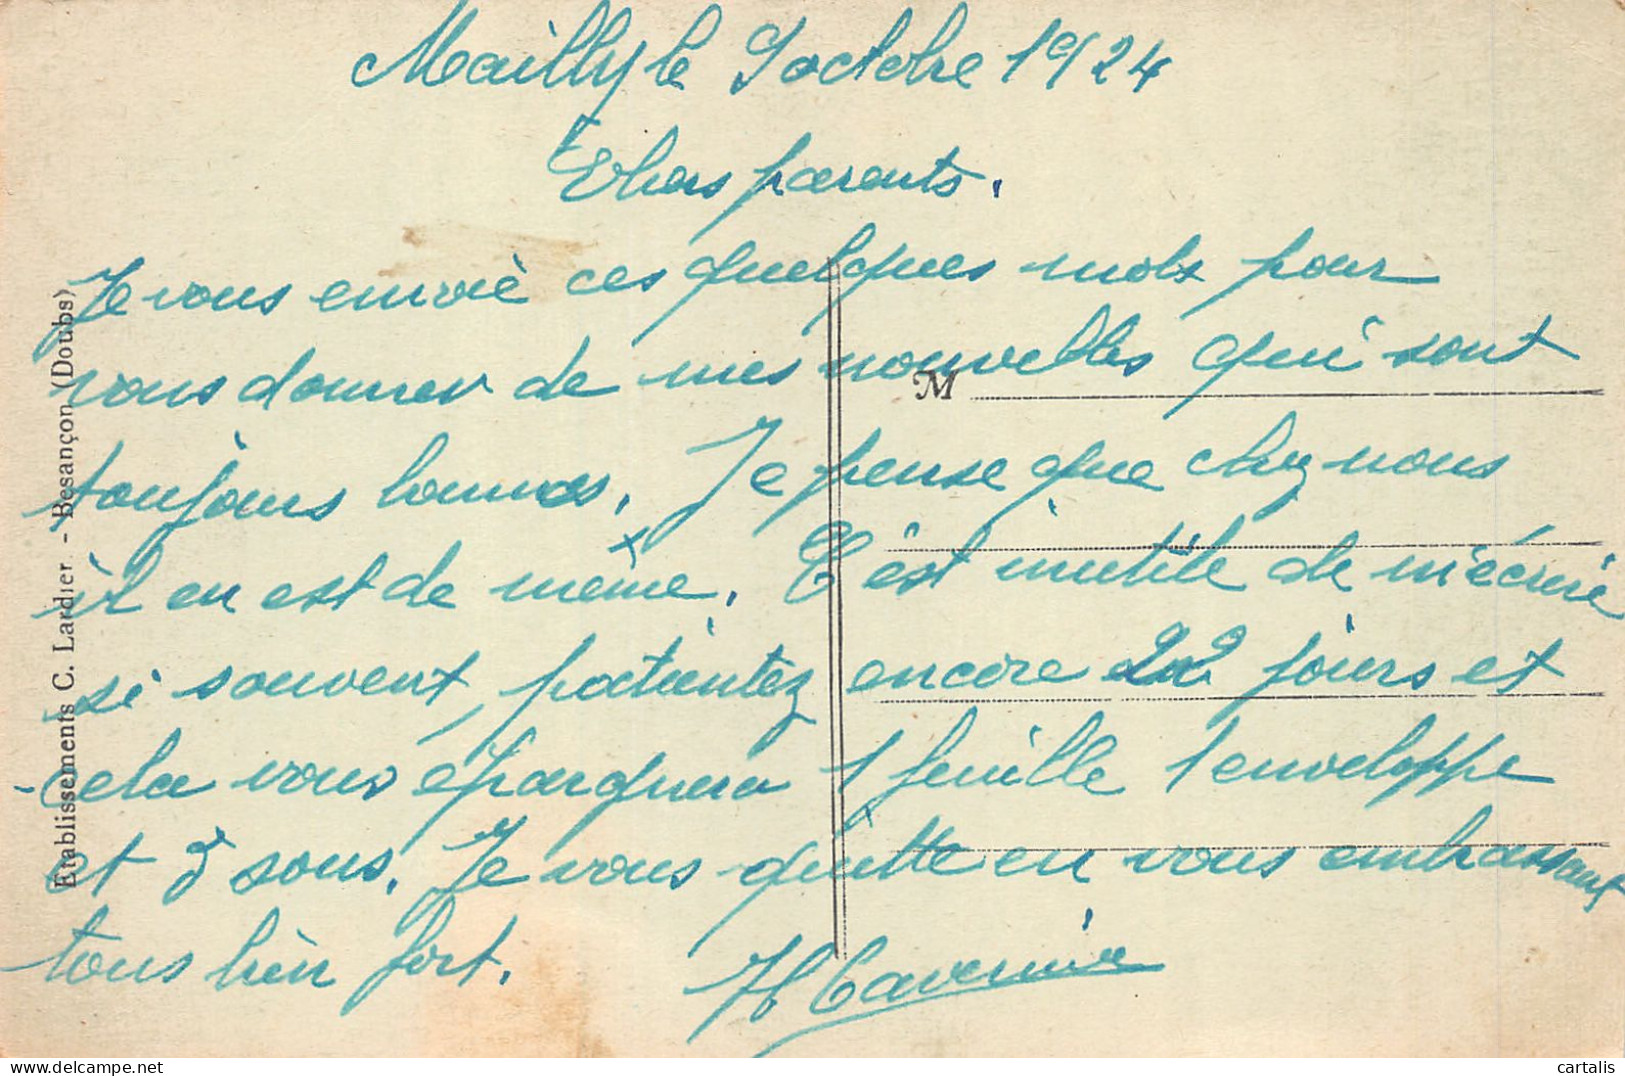 Mailly le 9 octobre 1924
Chers parents.
Je vous envoie ces quelques mots pour
vous donner de mes nouvelles qui sont
toujours bonnes. Je pense que chez nous
il en est de même. C'est inutile de m'écrire
si souvent, patientez encore jours et
cela vous épargnera 1 feuille 1 enveloppe
et 5 sous. Je vous quitte en vous embrassant
tous bien fort.
M
Etablissements C. Lardier - Besançon (Doubs)
cartalis